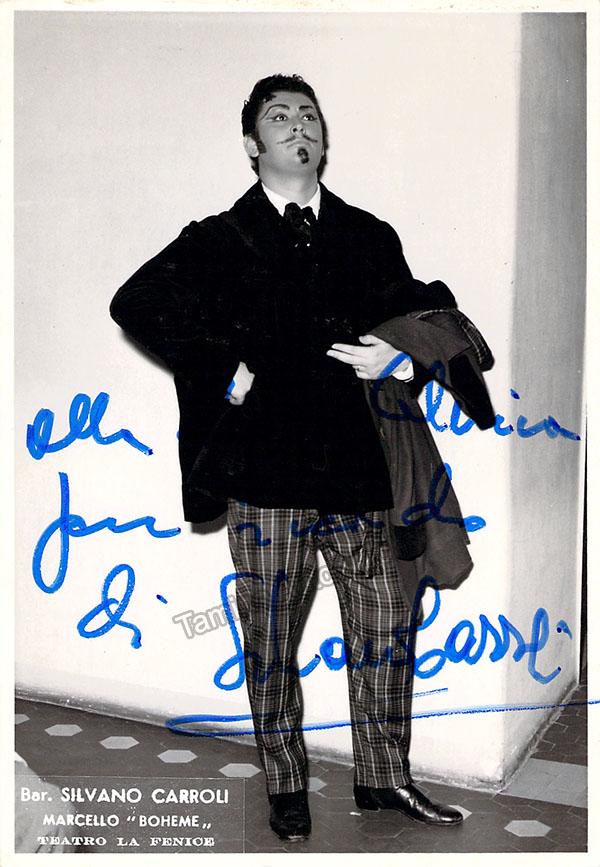 alla
per ricordo
di
Silvano Carroli
Tam
Bar. SILVANO CARROLI
MARCELLO "BOHEME„
TEATRO LA FENICE